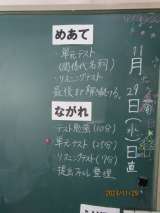 めあて
単元テスト
(関係代名詞)
・リスニングテスト
最後まで解ききる。
ながれ
テスト勉強(10分)
単元テスト(25分)
リスニングテスト(7分)
提出ファイル整理
11月29日(水)日直
2023/11/29